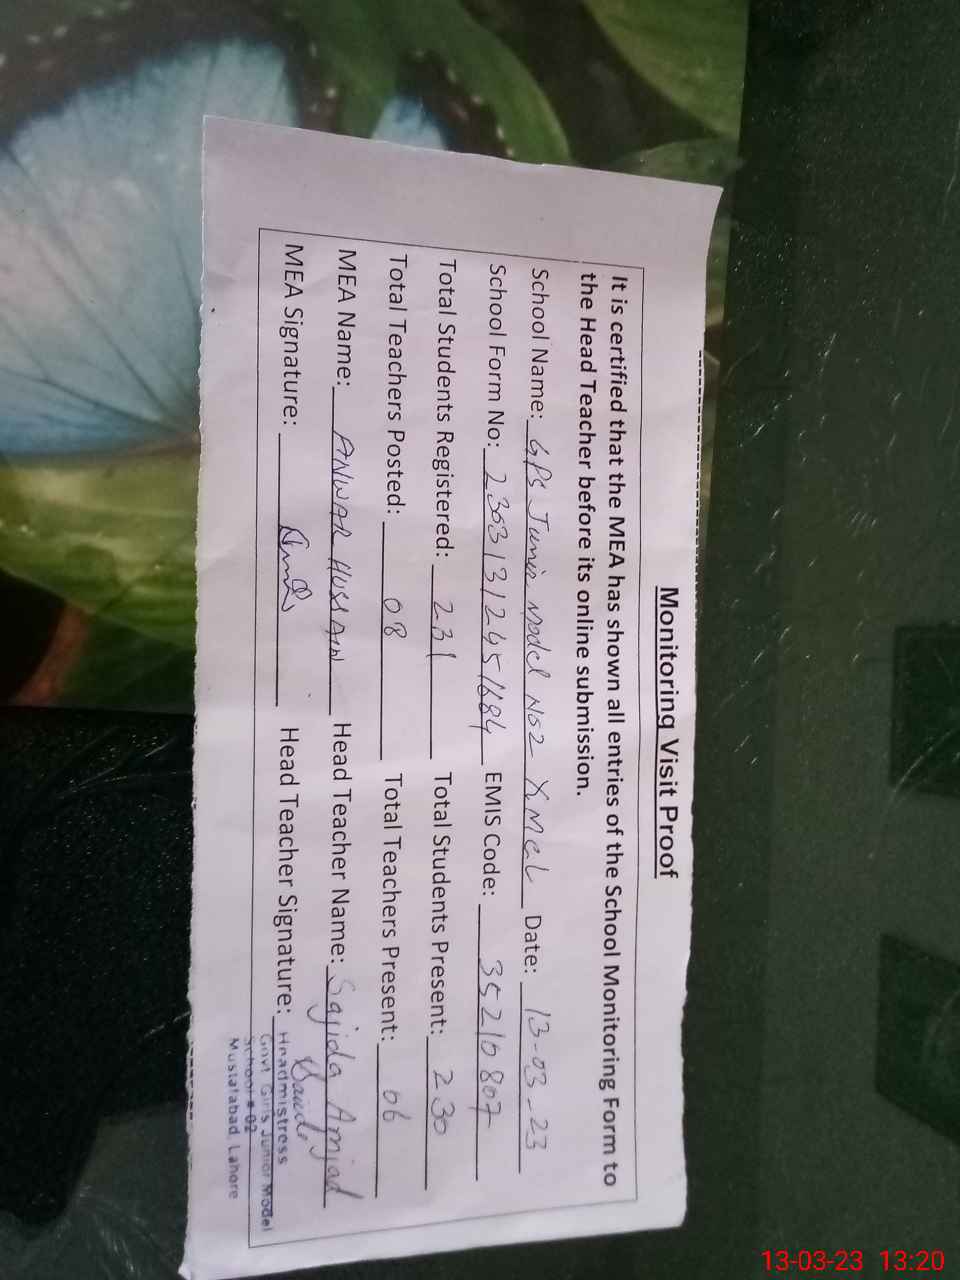 Monitoring Visit Proof
It is certified that the MEA has shown all entries of the School Monitoring Form to
the Head Teacher before its online submission.
School Name: GPS Junior Model No2 Date: 13-03-23
School Form No: 23031312451684 EMIS Code: 35210807
Total Students Registered: 231 Total Students Present: 230
Total Teachers Posted: 08 Total Teachers Present: 06
MEA Name: ANWAR HUSSAIN Head Teacher Name: Sajida Amjad
MEA Signature: Head Teacher Signature: Sajida
Headmistress
Govt Girls Junior Model
School # 02
Mustafabad, Lahore
13-03-23 13:20